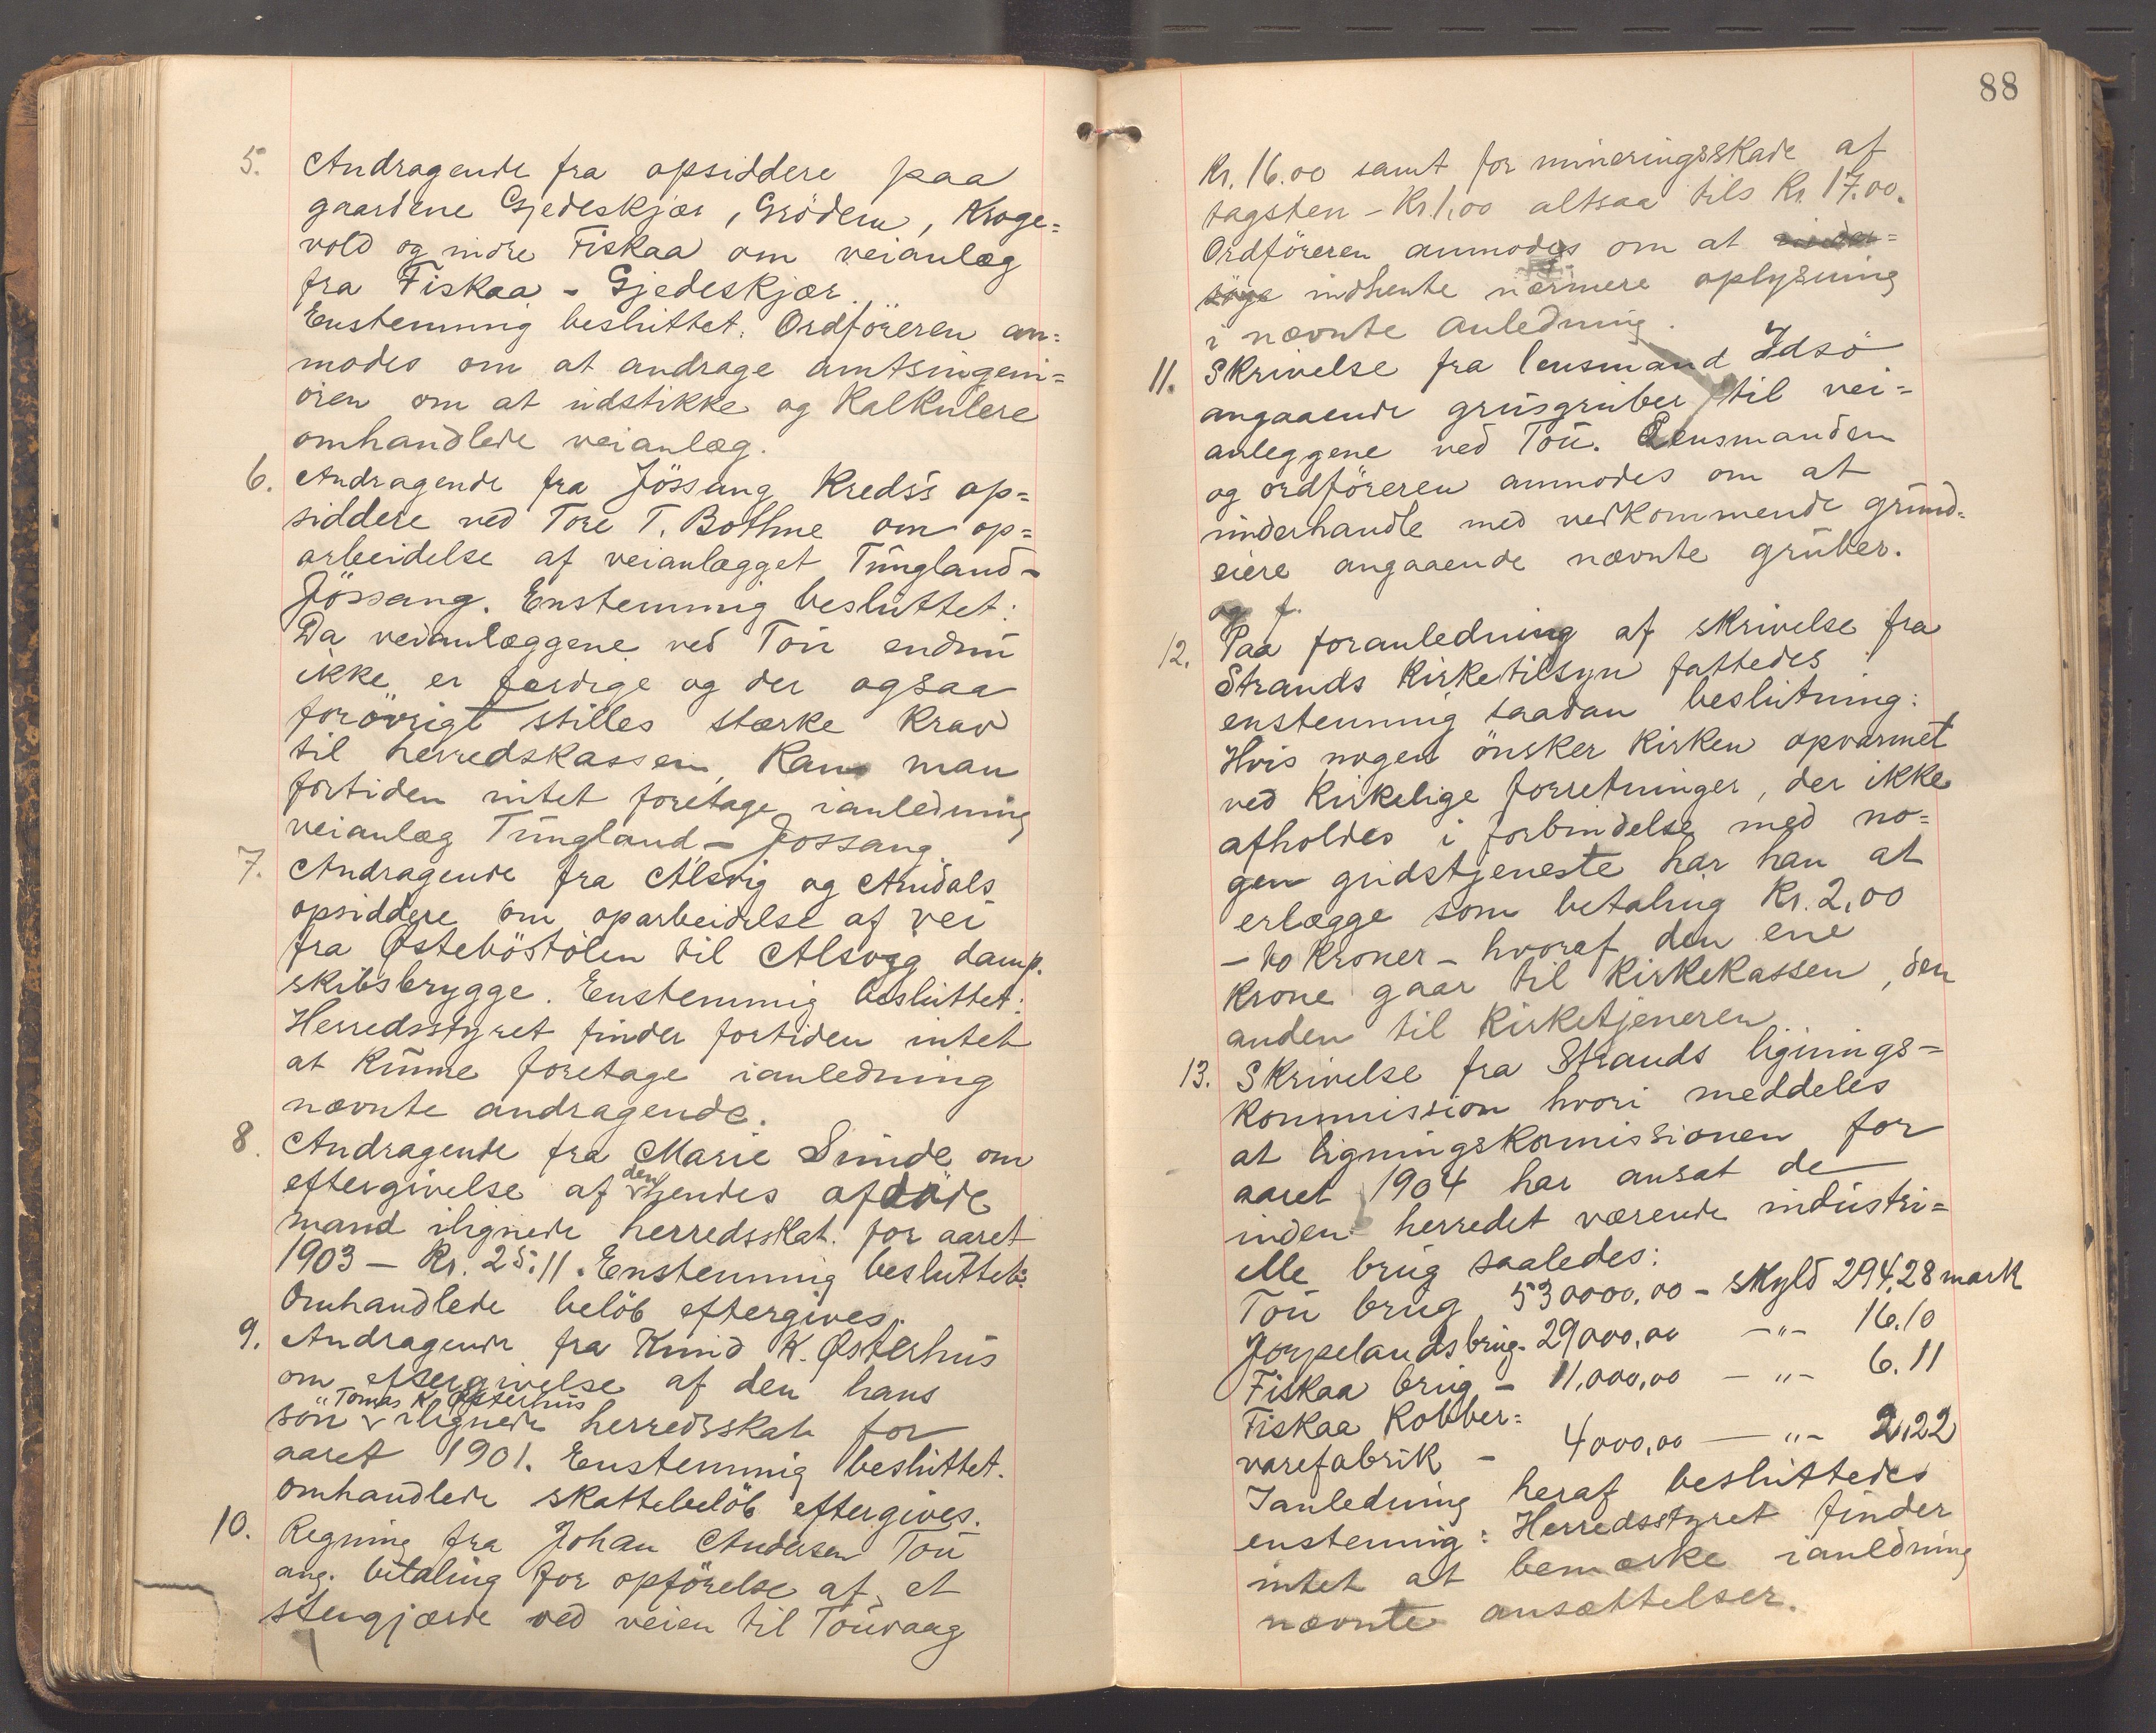 5. Andragende fra opsiddere paa
gaardene Gjedeskjær, Grödem, Kroge=
vold og indre Fiskaa om veianlæg
fra Fiskaa - Gjedeskjær.
Enstemmig besluttet: Ordföreren an=
modes om at andrage amtsingeni=
ören om at udstikke og Kalkulere
omhandlede veianlæg.
6. Andragende fra Jössang Kreds's op=
siddere ved Tore T. Bothne om op=
arbeidelse af veianlægget Tungland -
Jössang. Enstemmig besluttet:
Da veianlæggene ved Tou endnu
ikke er færdige og der ogsaa
forövrigt stilles stærke Krav
til herredskassen, Kan man
fortiden intet foretage ianledning
veianlæg Tungland - Jossang
7. Andragende fra Alsvig og Amdals
opsiddere om oparbeidelse af vei
fra Østeböstölen til Alsvig damp.
skibsbrygge. Enstemmig besluttet:
Herredsstyret finder fortiden intet
at Kunne foretage ianledning
nævnte andragende.
8. Andragende fra Marie Sunde om
eftergivelse af den hendes afdöde
mand ilignede herredsskat for aaret
1903 - Kr. 25.11. Enstemmig besluttet:
Omhandlede belöb eftergives.
9. Andragende fra Knud K. Østerhus
om eftergivelse af den hans
sön Tomas K. Østerhus ilignede herredsskat for
aaret 1901. Enstemmig besluttet.
Omhandlede skattebelöb eftergives.
10. Regning fra Johan Andersen Tou
ang. betaling for opförelse af et
stengjærde ved veien til Touvaag
88
Kr. 16.00 samt for mineringsskade af
tagsten - Kr. 1,00 altsaa tils Kr. 17.00.
Ordföreren anmodes om at under=
söge indhente nærmere oplysning
i nævnte anledning.
11. Skrivelse fra lensmand Idsö
angaaende grusgruber til vei=
anleggene ved Tou. Lensmanden
og ordföreren anmodes om at
underhandle med vedkommende grund=
eiere angaaende nævnte gruber.
og f.
12. Paa foranledning af skrivelse fra
Strands Kirketilsyn fattedes
enstemmig saadan beslutning:
Hvis nogen önsker Kirken opvarmet
ved Kirkelige forretninger, der ikke
afholdes i forbindelse med no=
gen gudstjeneste har han at
erlægge som betaling Kr. 2,00
- to Kroner - hvoraf den ene
Krone gaar til Kirkekassen, den
anden til Kirketjeneren
13. Skrivelse fra Strands lignings=
Kommission hvori meddeles
at ligningskomissionen for
aaret 1904 har ansat de
inden herredet værende industri=
elle brug saaledes:
Tou brug 530000,00 - Skyld 294,28 mark
Jørpelandsbrug - 29000,00 -"- 16.10
Fiskaa brug - 11,000,00 - "- 6.11
Fiskaa Kobber=
varefabrik - 4000,00 - "- 2,22
Ianledning heraf besluttedes
enstemmig: Herredsstyret finder
intet at bemærke ianledning
nævnte ansættelser.